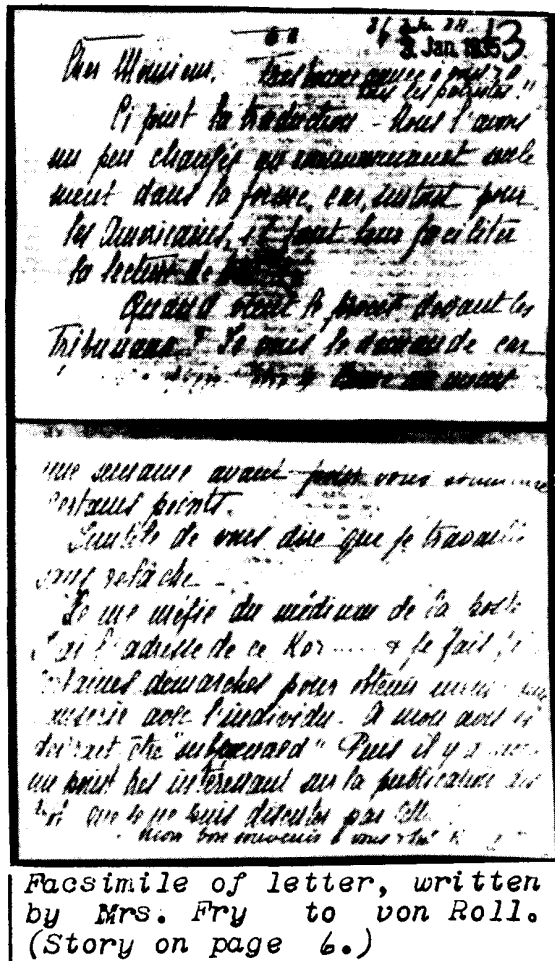 3 Jan. 1935 13
Cher Monsieur. Très bonne année à vous &
tous les
Ci joint la traduction - Nous l'avons
un peu changée au commencement seule
ment dans la forme, car, surtout pour
les Américains, il faut leur faciliter
la lecture de
Quand vient le procès devant les
Tribunaux? Je vous le demande car
une semaine avant pour vous
certains points.
Inutile de vous dire que je travaille
sans relâche
Je me méfie du médium de la poste
J'ai l'adresse de ce Kor..... & je fais
certaines démarches pour obtenir
causerie avec l'individu. A mon avis
devrait être "subpoenaed" Puis il y a
un point très intéressant sur la publication des
que je ne puis discuter par
mon bon souvenir à vous
Facsimile of letter, written
by Mrs. Fry to von Roll.
(Story on page 6.)